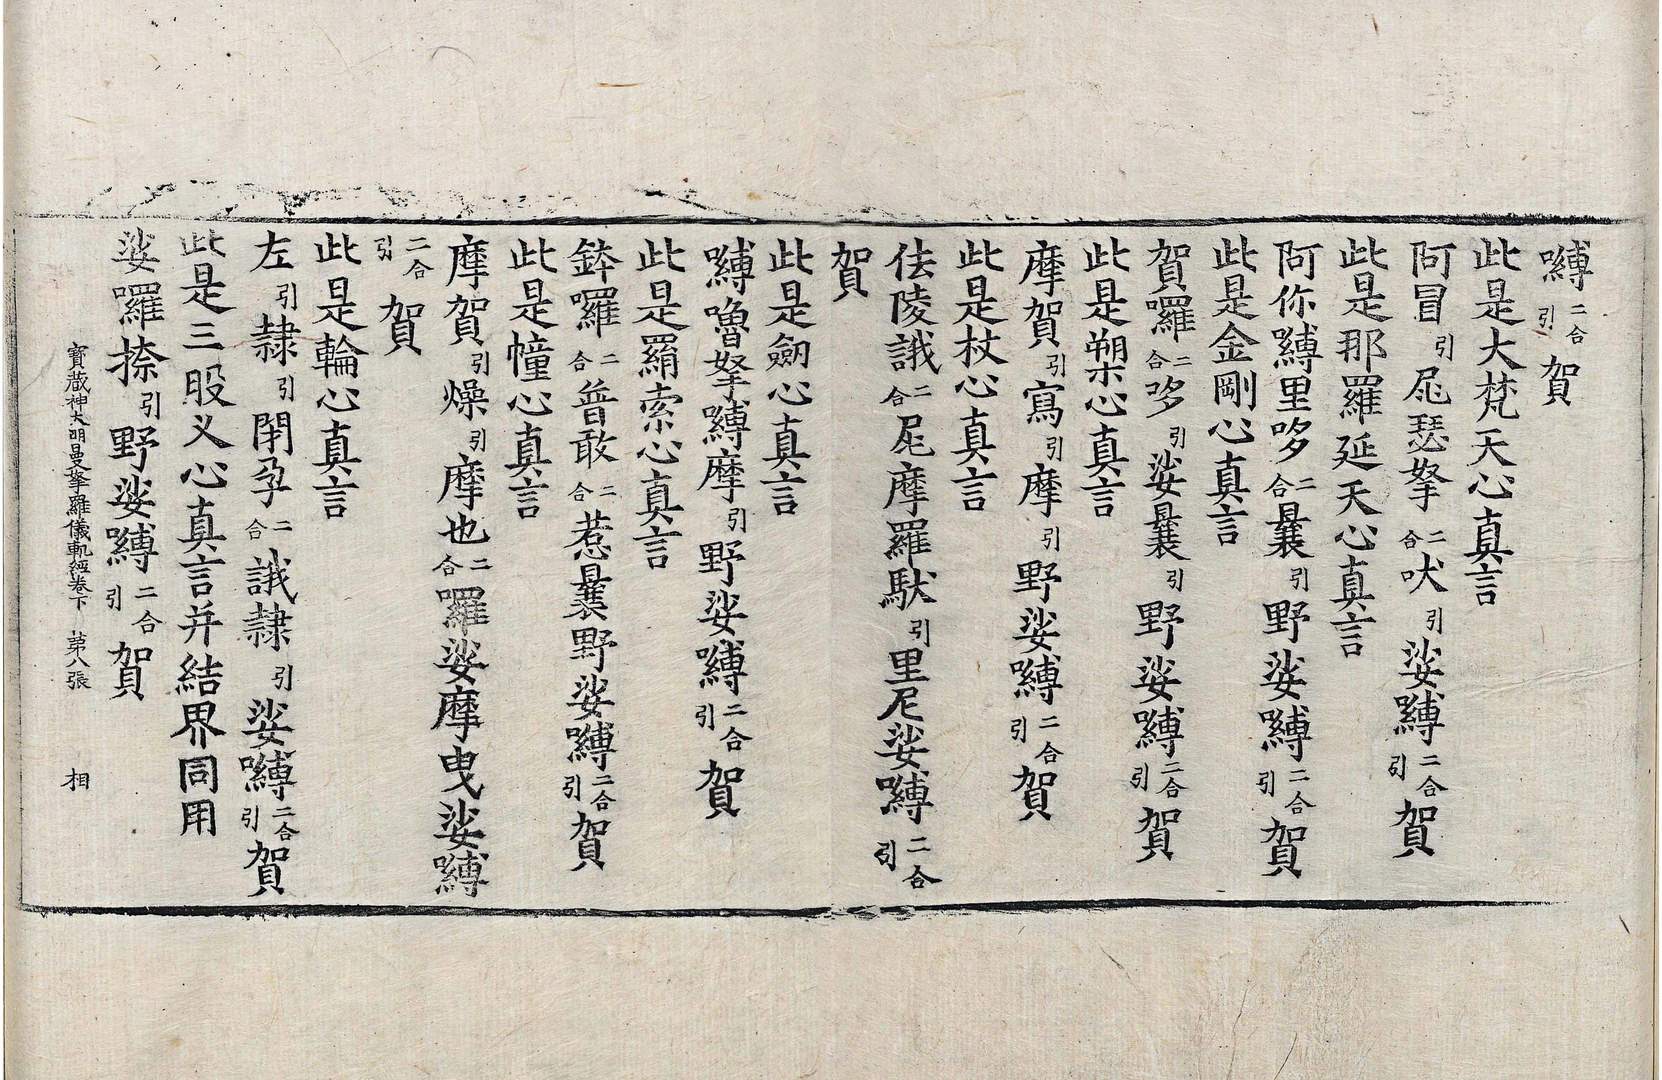 嚩二合引賀
此是大梵天心真言
阿冒引㞑瑟拏二合吠引娑嚩二合引賀
此是那羅延天心真言
阿你嚩里哆二合曩引野娑嚩二合引賀
此是金剛心真言
賀囉二合哆引娑曩引野娑嚩二合引賀
此是槊心真言
摩賀引寫引摩引野娑嚩二合引賀
此是杖心真言
佉陵誐二合㞑摩羅馱引里尼娑嚩二合引
賀
此是劒心真言
嚩嚕拏嚩摩引野娑嚩二合引賀
此是羂索心真言
鉢囉二合普敢二合惹曩野娑嚩二合引賀
此是幢心真言
摩賀引燥引摩也二合囉娑摩曳娑嚩
二合引賀
此是輪心真言
左引隷引閉孕二合誐隷引娑嚩二合引賀
此是三股叉心真言并結界同用
娑囉捺引野娑嚩二合引賀
寶藏神大明曼拏羅儀軌經卷下 第八張 相